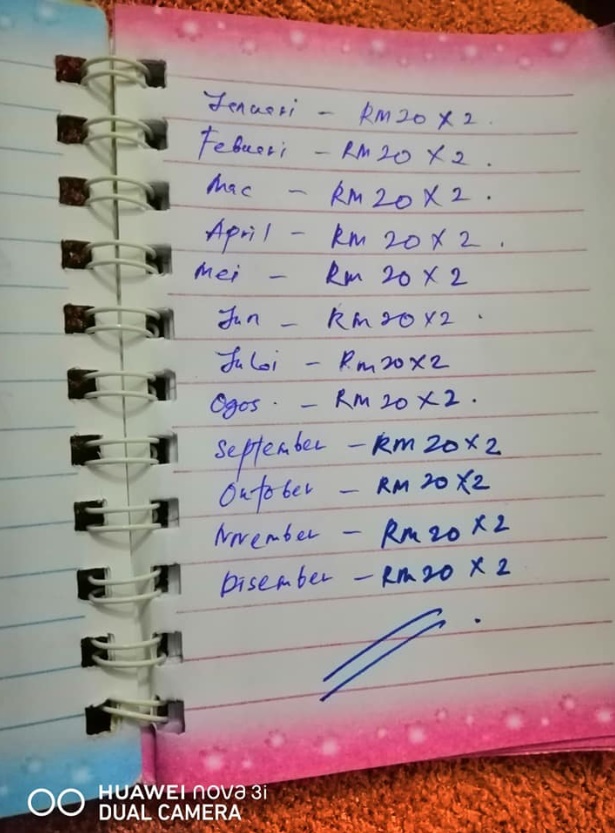 Januari - RM20 X 2.
Febuari - RM 20 X 2.
Mac - RM 20 X 2.
April - RM 20 X 2.
Mei - RM 20 X 2
Jun - RM 20 X 2.
Julai - Rm 20 X 2
Ogos. - RM 20 X 2.
September - RM 20 X 2
Oktober - RM 20 X 2
November - RM 20 X 2
Disember - RM 20 X 2
HUAWEI nova 3i
DUAL CAMERA